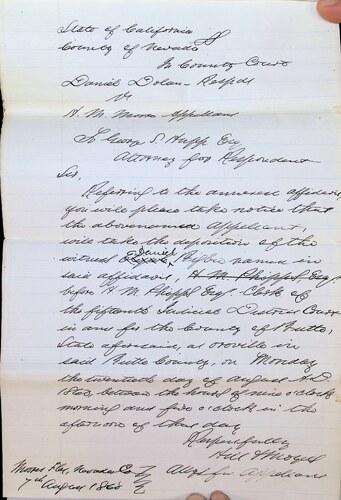 State of California
County of Nevada
In County Court
Daniel Dolan - Respdt
v
H. M. Moore Appellant
To George S. Hupp Esq
Attorney for Respondent
Sir,
Referring to the annexed affidavit,
you will please take notice that
the abovenamed Appellant,
will take the deposition of the
witness Daniel named in
said affidavit, H. M. Phipps, Esq.
before H. M. Phipps Esq. Clerk of
the fifteenth Judicial District Court
in and for the County of Butte,
State aforesaid, at oroville in
said Butte County, on Monday
the twentieth day of august A.D.
between the hours of nine o'clock
morning and five o'clock in the
afternoon of that day
Respectfully
Atty for Appellant
Moores Flat, Nevada Co
7th August